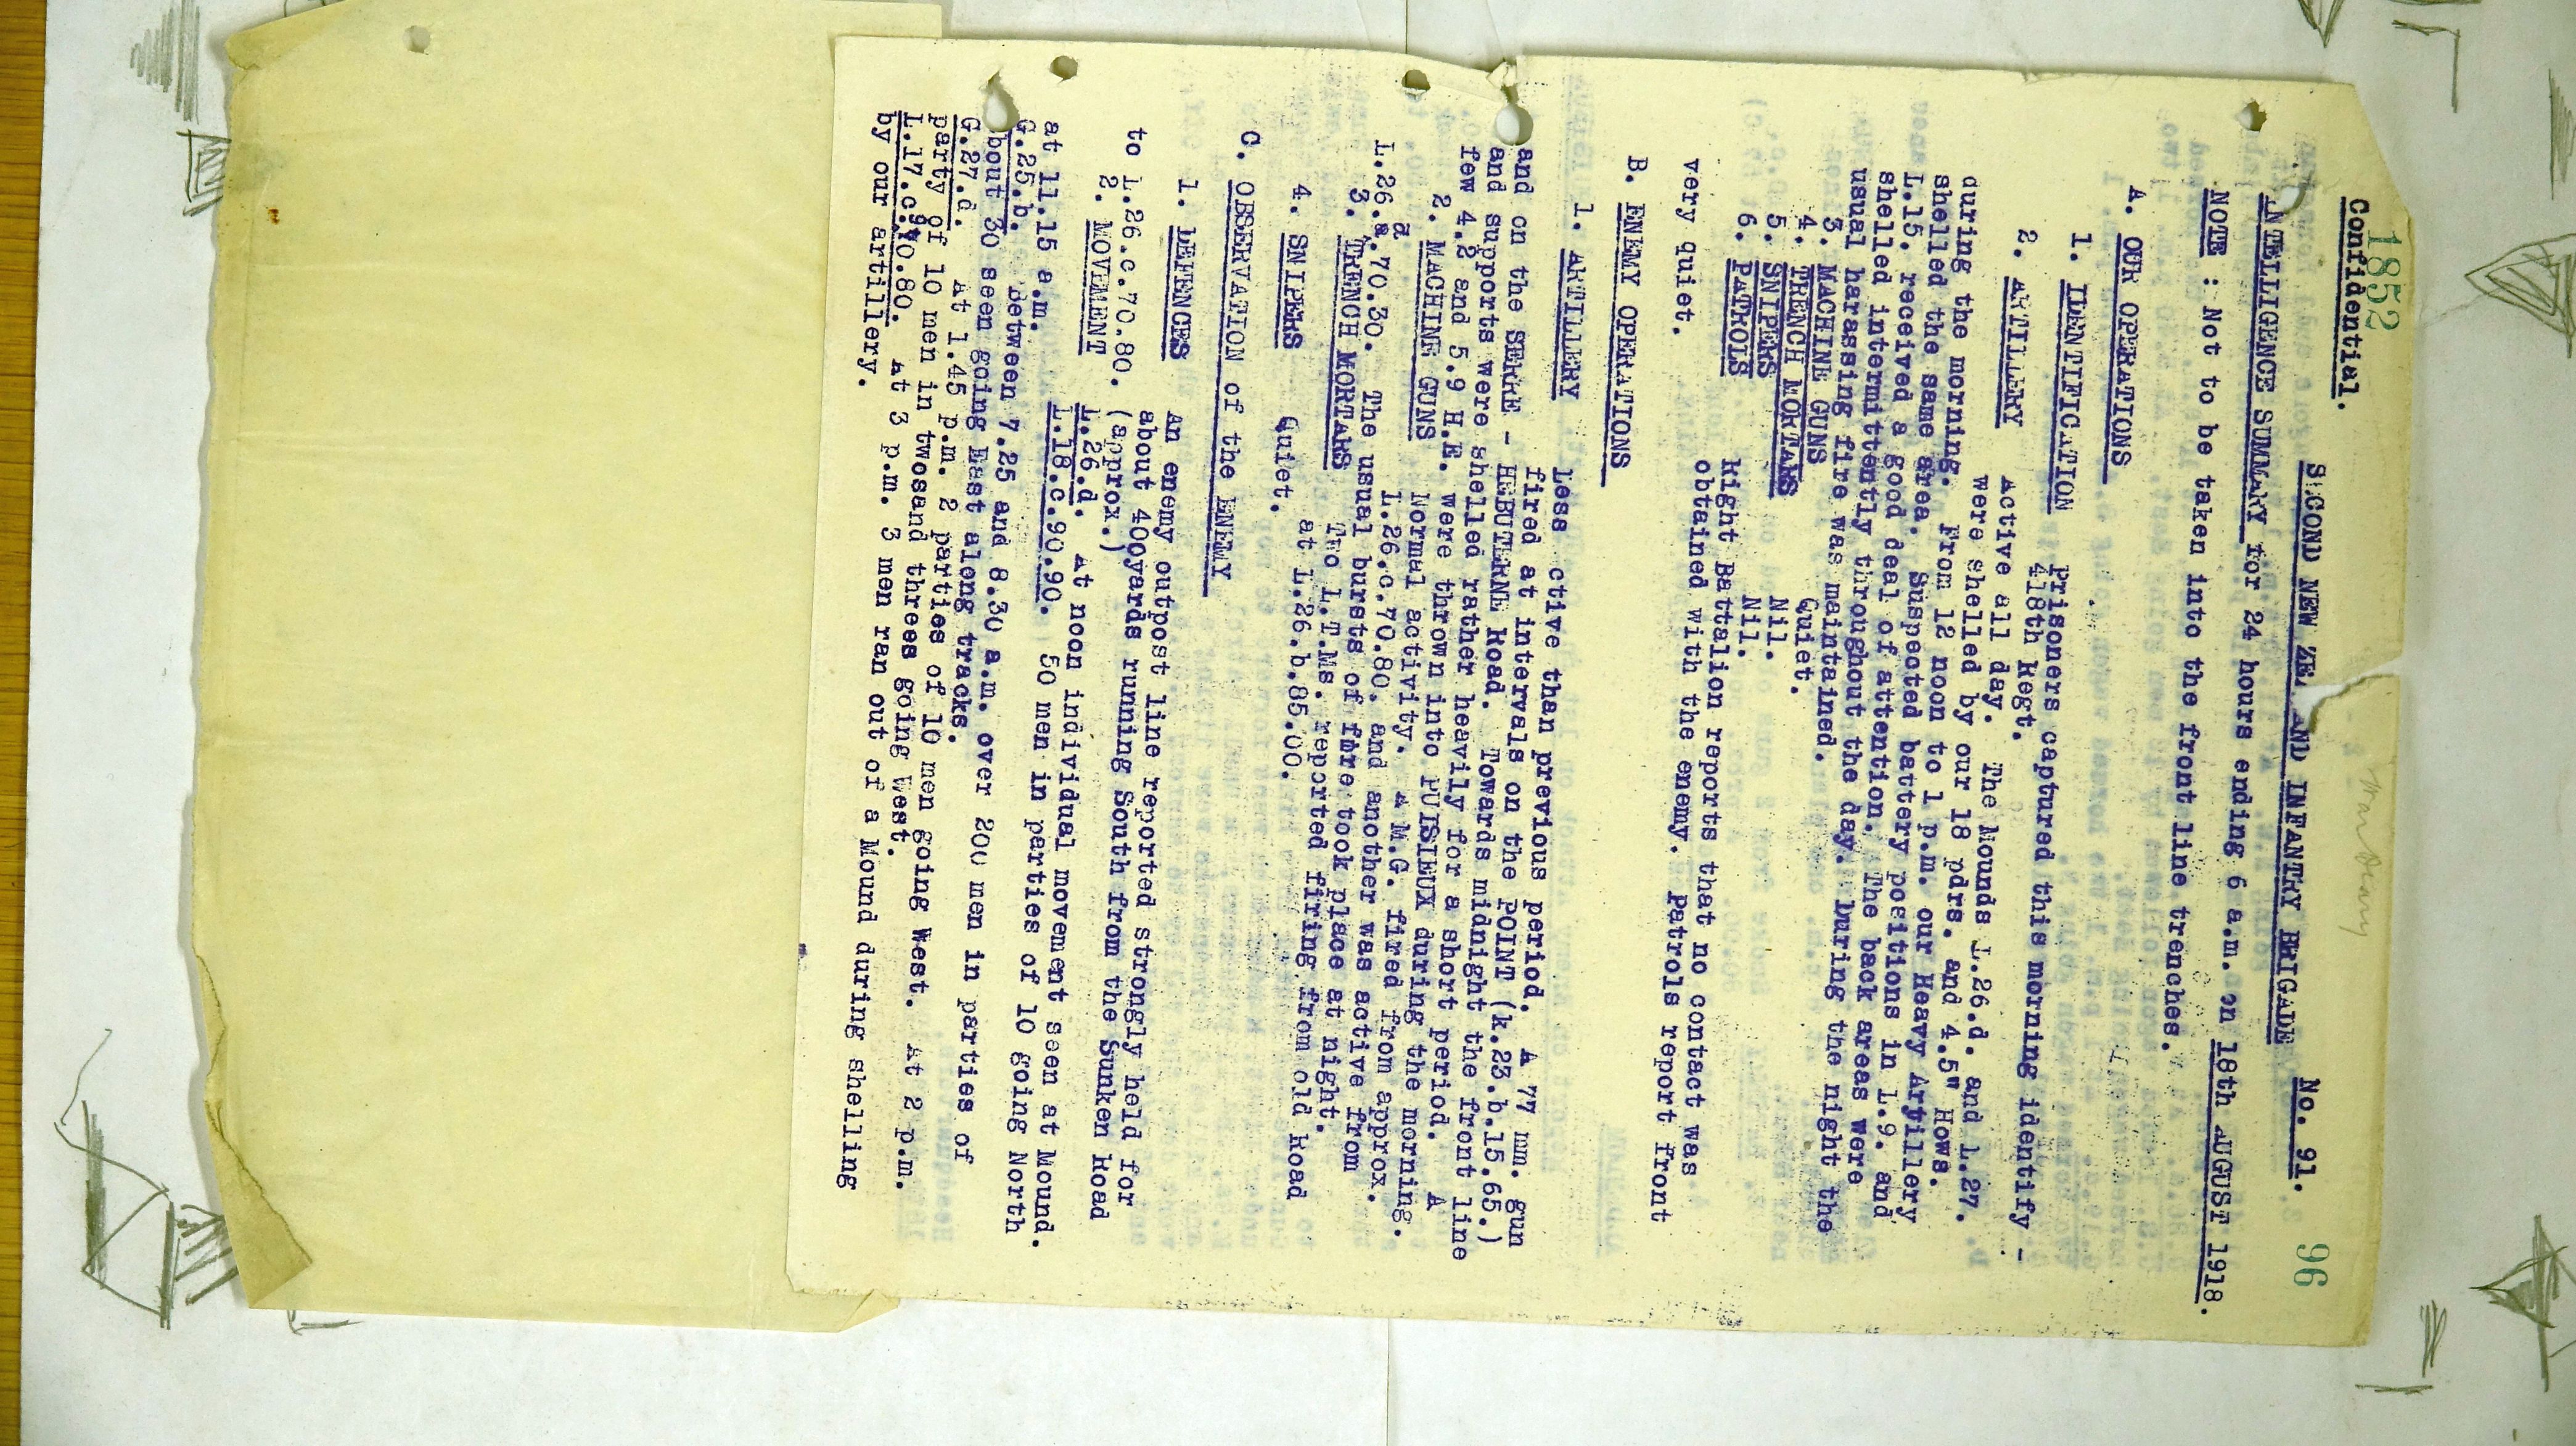 1852
Confidential.
War Diary
96
SECOND NEW ZEALAND INFANTRY BRIGADE No. 91.
INTELLIGENCE SUMMARY for 24 hours ending 6 a.m. on 18th AUGUST 1918.
NOTE : Not to be taken into the front line trenches.
A. OUR OPERATIONS
1. IDENTIFICATION Prisoners captured this morning identify -
418th Regt.
2. ARTILLERY Active all day. The Mounds L.26.d. and L.27.
were shelled by our 18 pdrs. and 4.5" Hows.
during the morning. From 12 noon to 1 p.m. our Heavy Artillery
shelled the same area. Suspected battery positions in L.9. and
L.15. received a good deal of attention. The back areas were
shelled intermittently throughout the day. During the night the
usual harassing fire was maintained.
3. MACHINE GUNS Quiet.
4. TRENCH MORTARS Nil.
5. SNIPERS Nil.
6. PATROLS Right Battalion reports that no contact was
obtained with the enemy. Patrols report front
very quiet.
B. ENEMY OPERATIONS
1. ARTILLERY Less ctive than previous period. A 77 mm. gun
fired at intervals on the POINT (K.23.b.15.65.)
and on the SERRE - HEBUTERNE Road. Towards midnight the front line
and supports were shelled rather heavily for a short period. A
few 4.2 and 5.9 H.E. were thrown into PUISIEUX during the morning.
2. MACHINE GUNS Normal activity. A M.G. fired from approx.
L.26.c.70.80. and another was active from
L.26.a.70.30. The usual bursts of fire took place at night.
3. TRENCH MORTARS Two L.T.Ms. reported firing from old Road
at L.26.b.85.00.
4. SNIPERS Quiet.
C. OBSERVATION of the ENEMY
1. DEFENCES An enemy outpost line reported strongly held for
about 400yards running South from the Sunken Road
to L.26.c.70.80. (approx.)
2. MOVEMENT L.26.d. At noon individual movement seen at Mound.
L.18.c.90.90. 50 men in parties of 10 going North
at 11.15 a.m.
G.25.b. Between 7.25 and 8.30 a.m. over 200 men in parties of
about 30 seen going East along tracks.
G.27.d. At 1.45 p.m. 2 parties of 10 men going West. At 2 p.m.
party of 10 men in twosand threes going West.
L.17.c.90.80. At 3 p.m. 3 men ran out of a Mound during shelling
by our artillery.